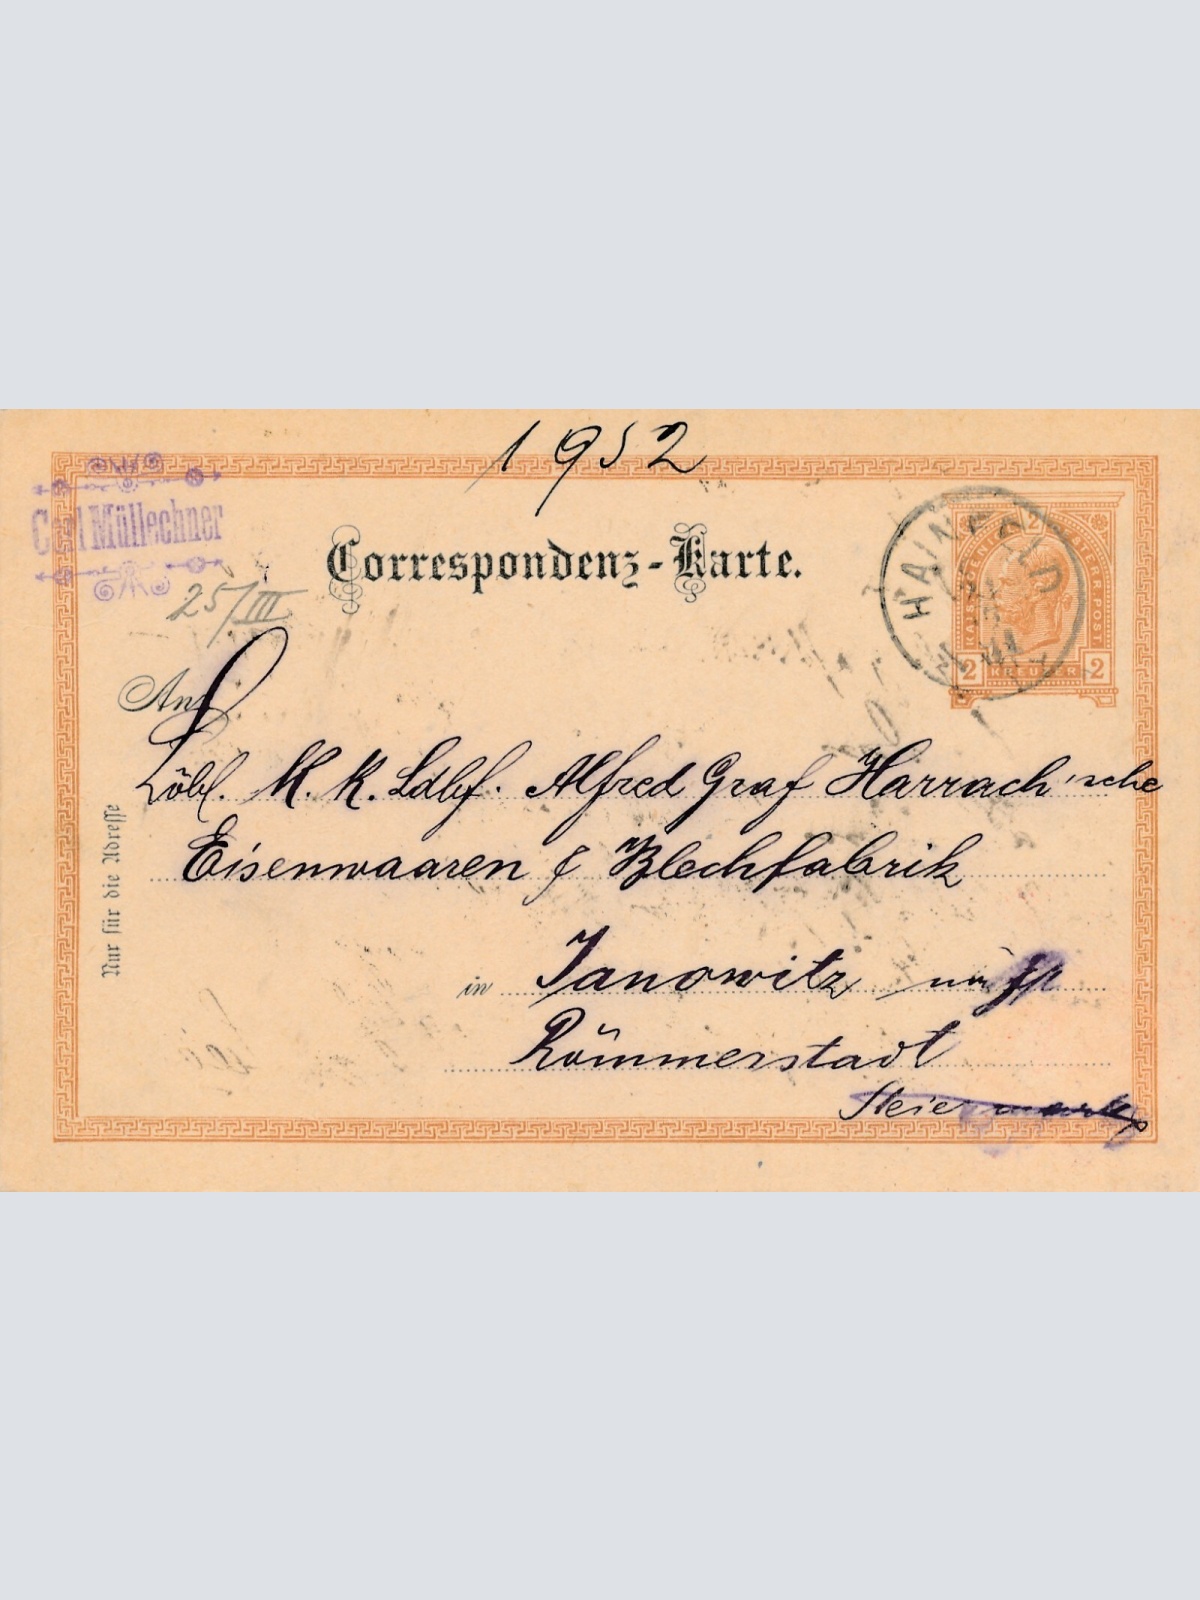 1952
Carl Müllechner
25/III
Correspondenz-Karte.
HAINFELD
2
KAIS. KOENIGL. OESTERR. POST
2 KREUZER 2
An
Löbl. K. K. Ldbf. Alfred Graf Harrach'sche
Eisenwaaren & Blechfabrik
in Janowitz
Römmerstadt
Steiermark
Nur für die Adresse